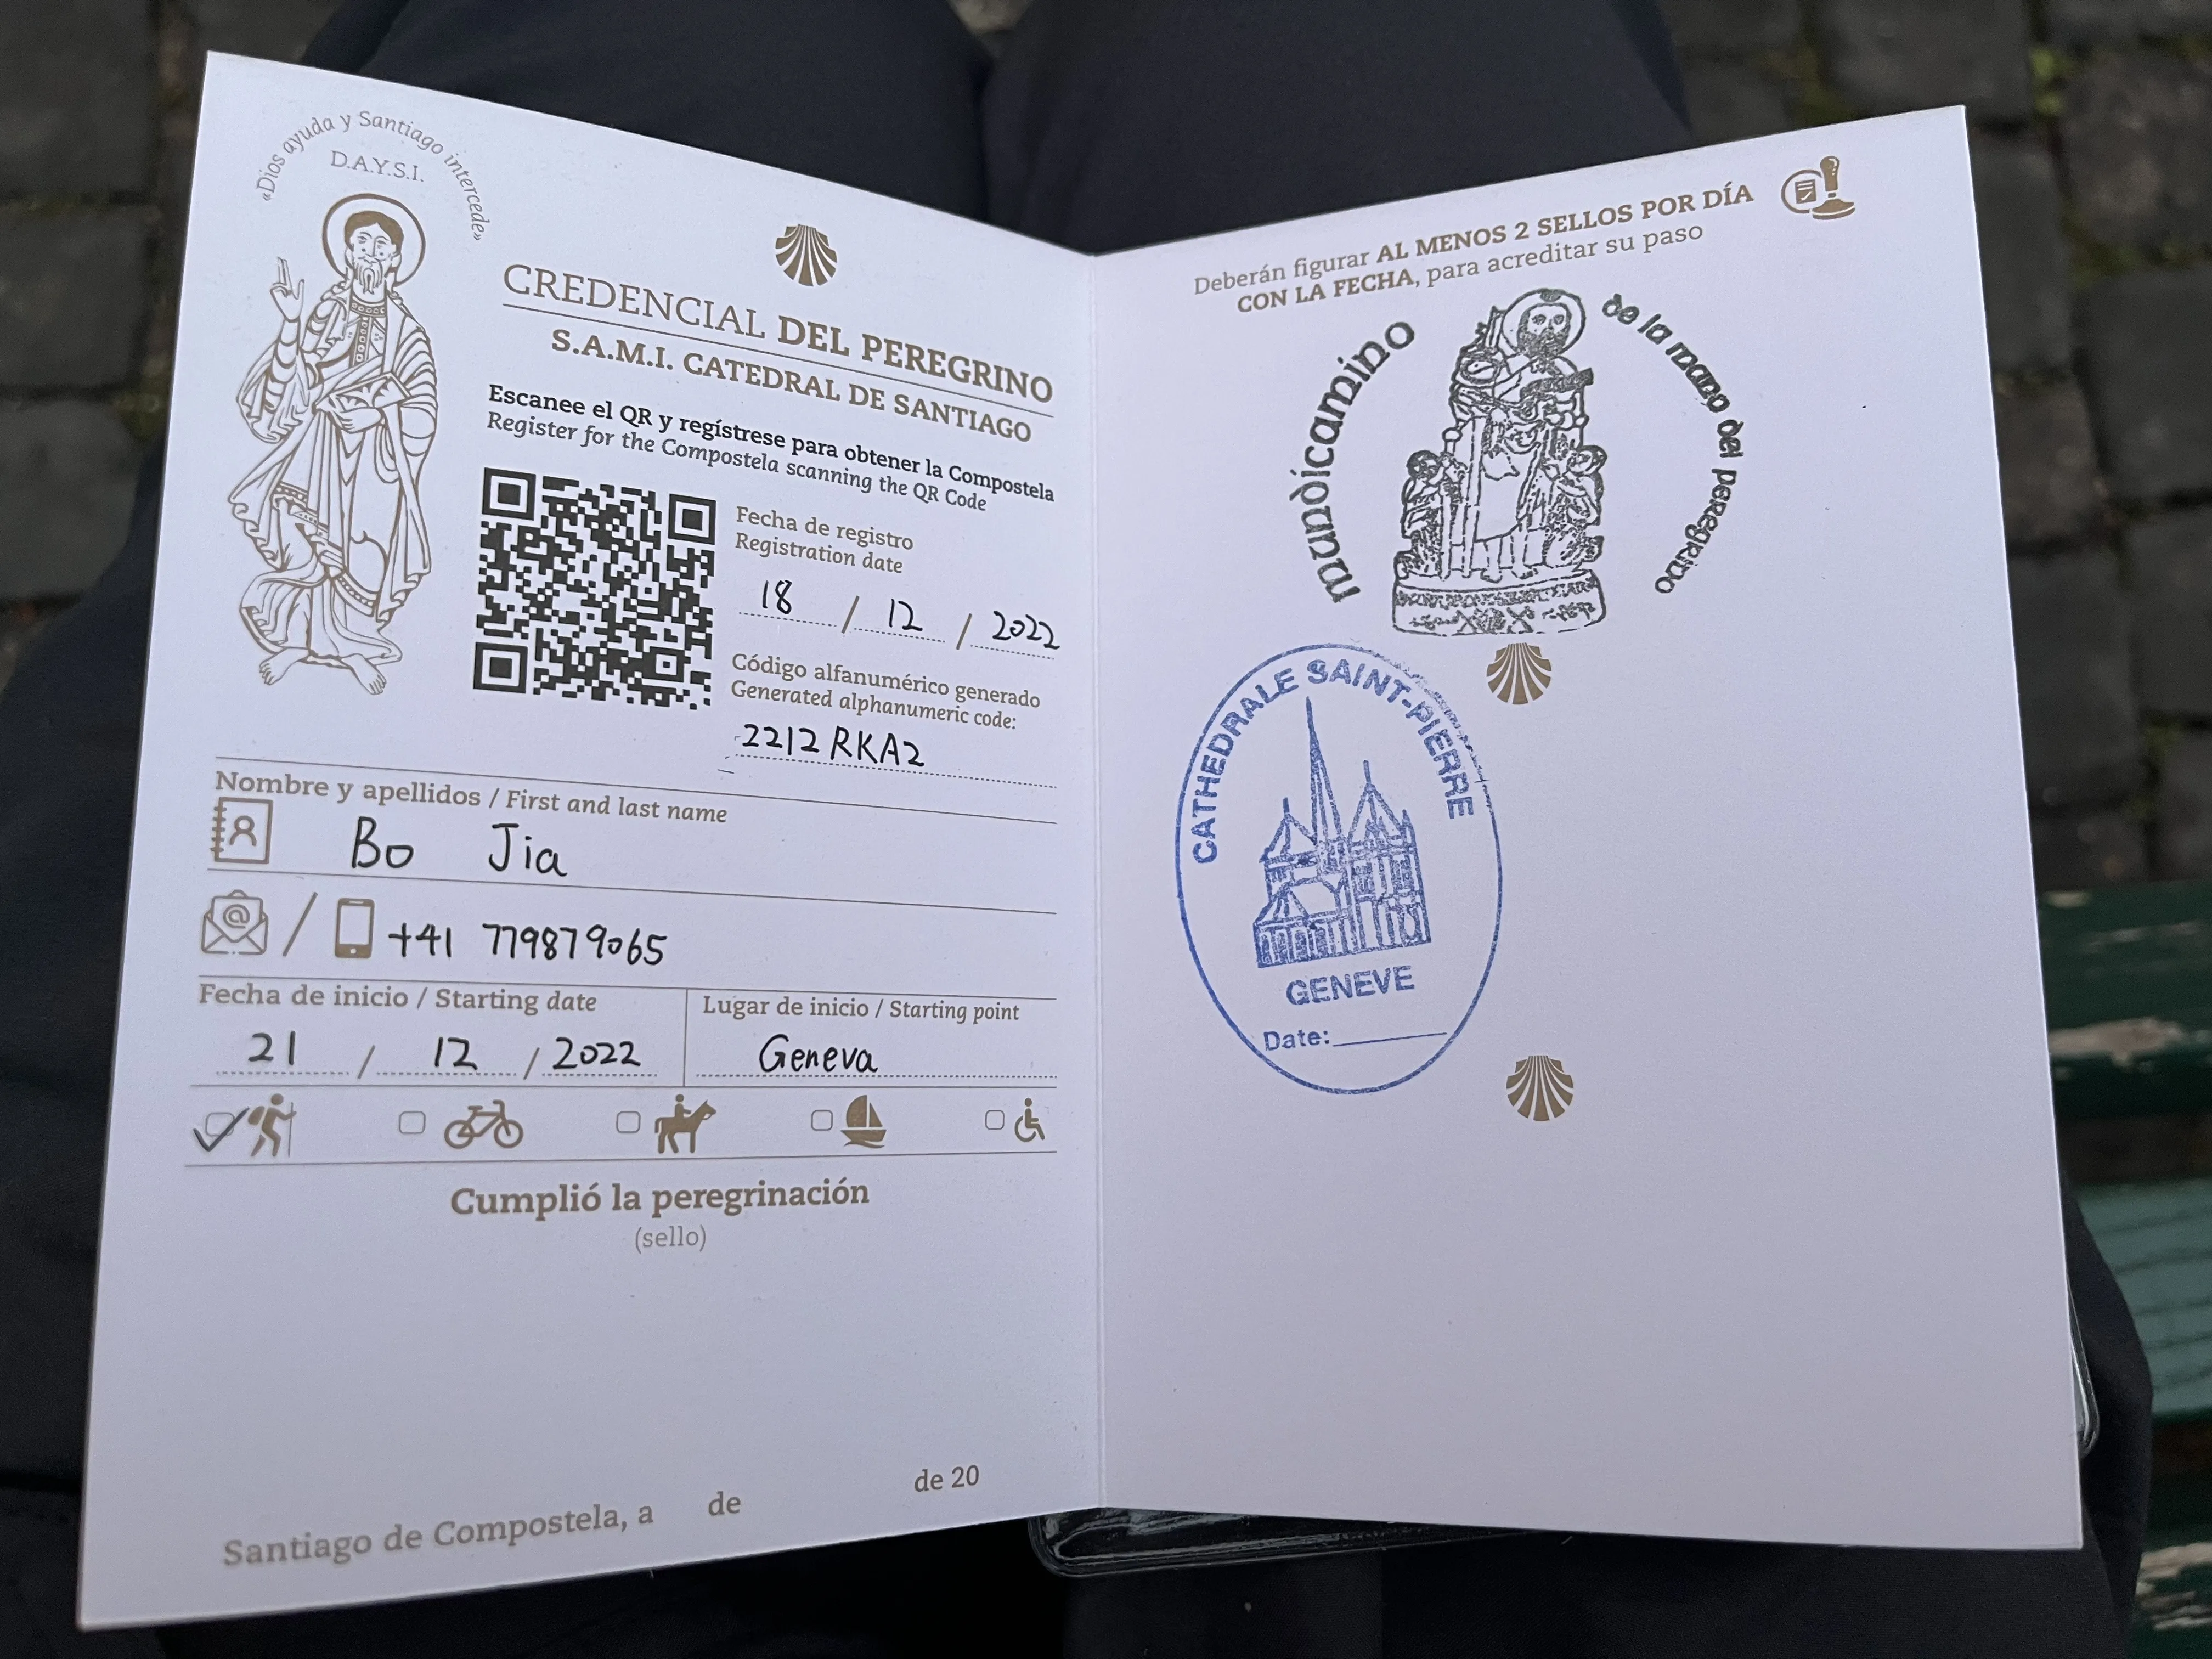 «Dios ayuda y Santiago intercede»
D.A.Y.S.I.
CREDENCIAL DEL PEREGRINO
S.A.M.I. CATEDRAL DE SANTIAGO
Escanee el QR y regístrese para obtener la Compostela
Register for the Compostela scanning the QR Code
Fecha de registro
Registration date
18 / 12 / 2022
Código alfanumérico generado
Generated alphanumeric code:
2212 RKA2
Nombre y apellidos / First and last name
Bo Jia
/ +41 779879065
Fecha de inicio / Starting date
21 / 12 / 2022
Lugar de inicio / Starting point
Geneva
Cumplió la peregrinación
(sello)
Santiago de Compostela, a de de 20
Deberán figurar AL MENOS 2 SELLOS POR DÍA
CON LA FECHA, para acreditar su paso
mundicamino
de la mano del peregrino
CATHEDRALE SAINT-PIERRE
GENEVE
Date: